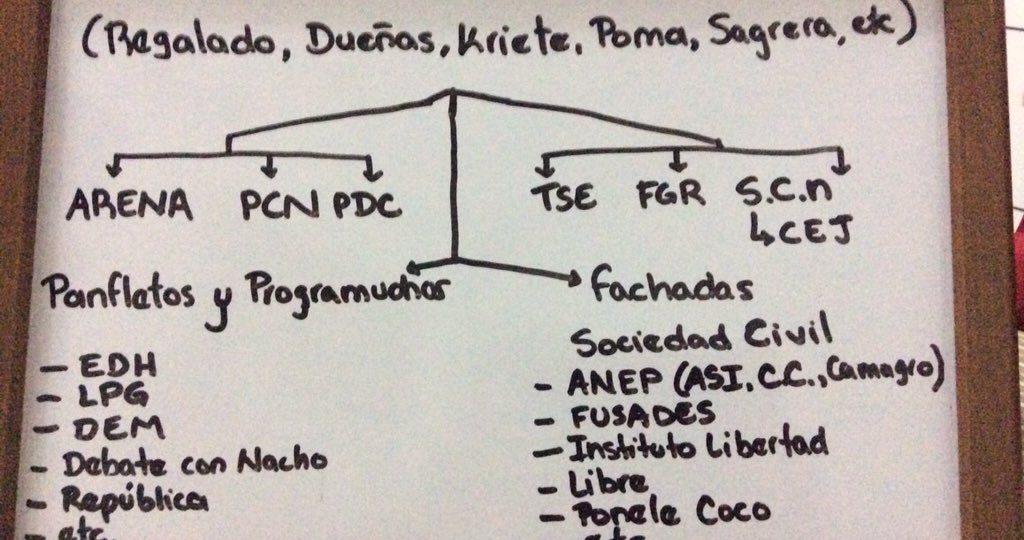 (Regalado, Dueñas, Kriete, Poma, Sagrera, etc)
ARENA PCN PDC
TSE FGR S.C.n
↳CEJ
Panfletos y Programuchos
- EDH
- LPG
- DEM
- Debate con Nacho
- República
- etc.
Fachadas
Sociedad Civil
- ANEP (ASI, C.C., Camagro)
- FUSADES
- Instituto Libertad
- Libre
- Ponele Coco
etc